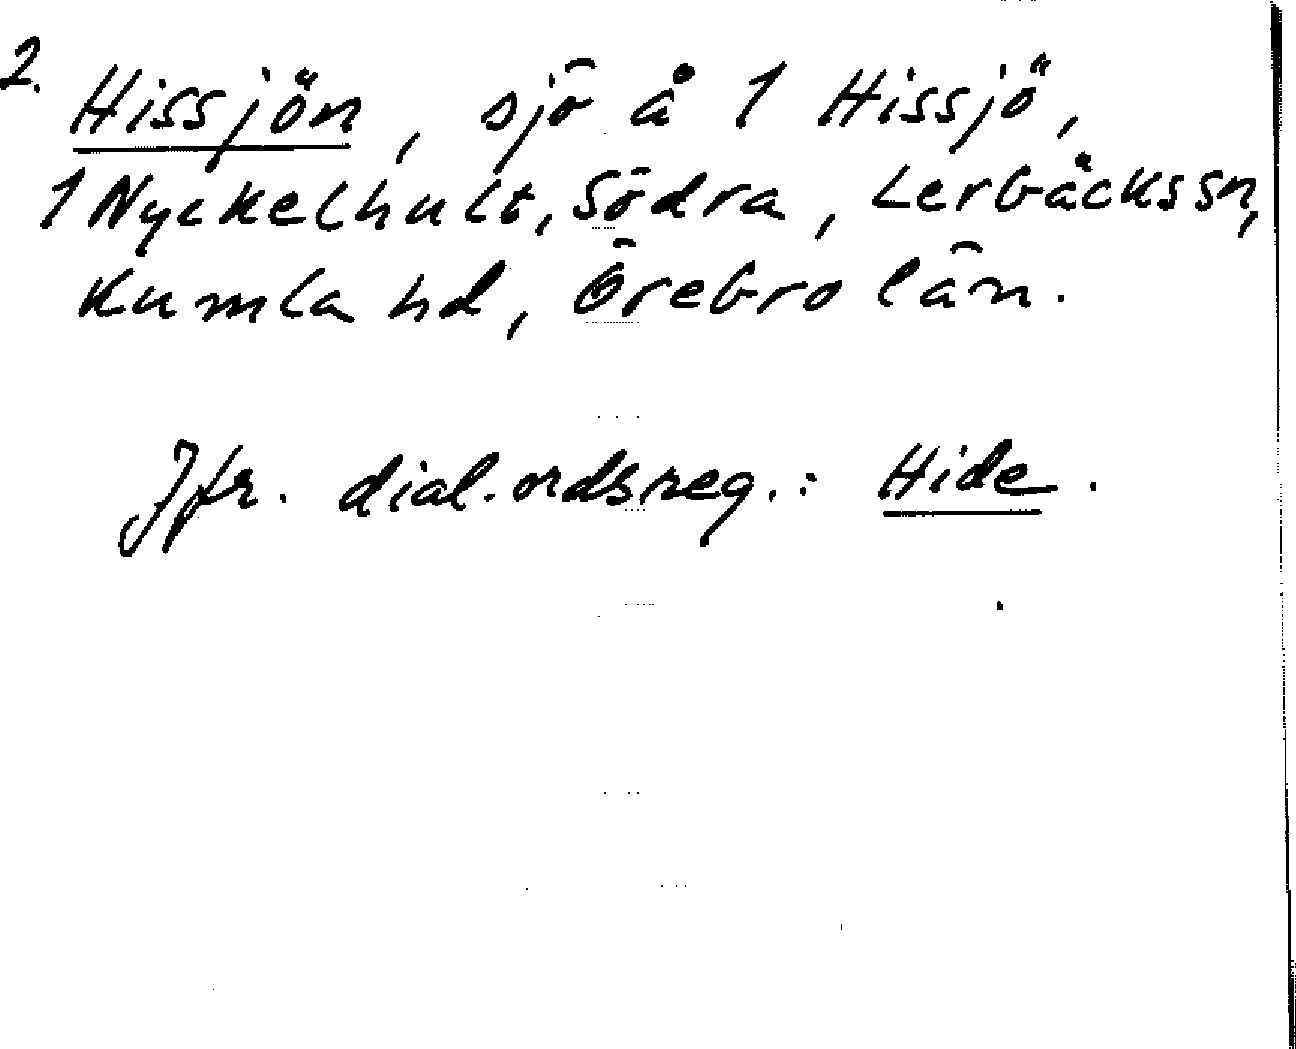 2.
Hissjön, sjö å 1 Hissjö,
1 Nyckelhult, Södra, Lerbäckssn,
Kumla hd, Örebro län.
Jfr. dial.ordsreg.: Hide.